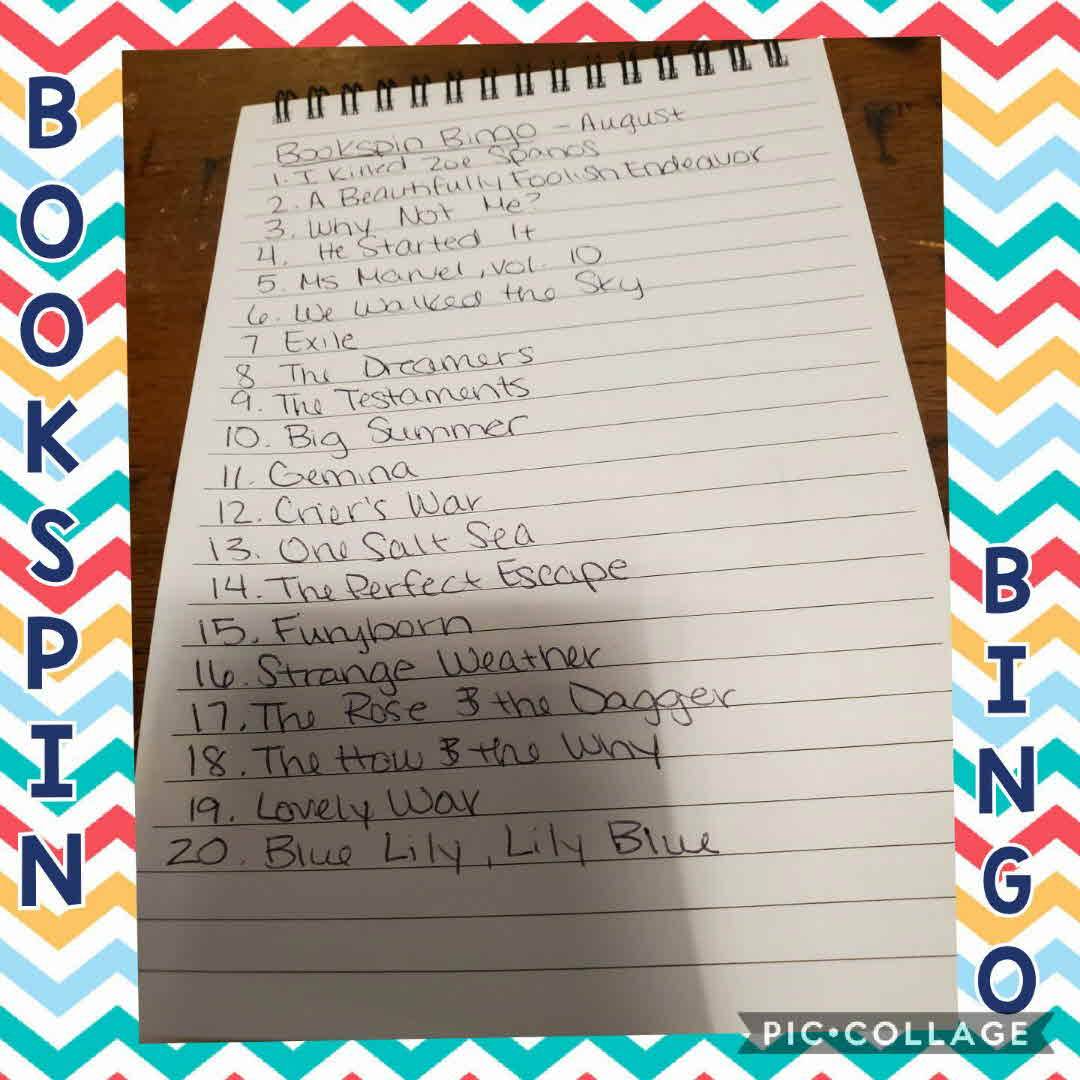 BOOKSPIN
Bookspin Bingo - August
1. I Killed Zoe Spanos
2. A Beautifully Foolish Endeavor
3. Why Not Me?
4. He Started It
5. Ms Marvel, vol. 10
6. We Walked the Sky
7 Exile
8 The Dreamers
9. The Testaments
10. Big Summer
11. Gemina
12. Crier's War
13. One Salt Sea
14. The Perfect Escape
15. Furyborn
16. Strange Weather
17. The Rose & the Dagger
18. The How & the Why
19. Lovely War
20. Blue Lily, Lily Blue
BINGO
PIC•COLLAGE